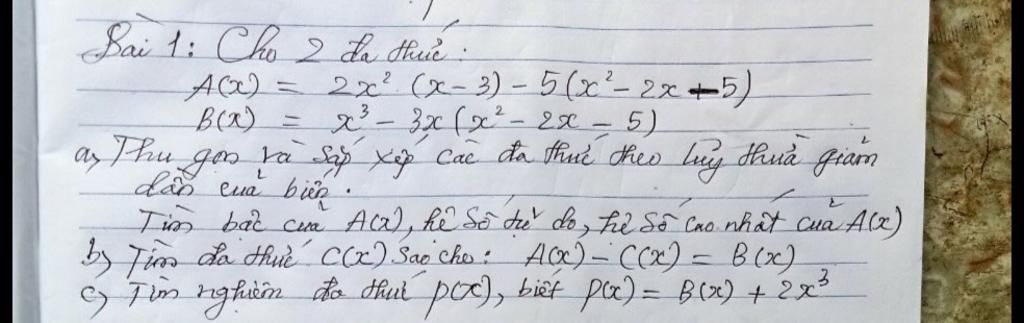 Bài 1: Cho 2 đa thức:
A(x) = 2x² (x-3) - 5(x² - 2x + 5)
B(x) = x³ - 3x(x² - 2x - 5)
a, Thu gọn và sắp xếp các đa thức theo lũy thừa giảm
dần của biến.
Tìm bậc của A(x), hệ số tự do, hệ số cao nhất của A(x)
b, Tìm đa thức C(x) sao cho: A(x) - C(x) = B(x)
c, Tìm nghiệm đa thức P(x), biết P(x) = B(x) + 2x³